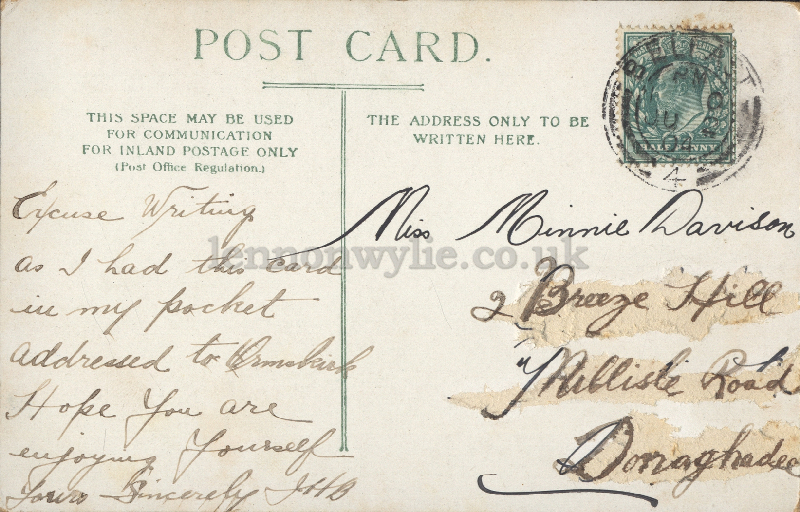 POST CARD.
THIS SPACE MAY BE USED
FOR COMMUNICATION
FOR INLAND POSTAGE ONLY
(Post Office Regulation.)
THE ADDRESS ONLY TO BE
WRITTEN HERE.
BELFAST
PM
JU
4
HALFPENNY
Excuse Writing
as I had this card
in my pocket
addressed to Ormskirk
Hope You are
enjoying Yourself
Yours Sincerely JHB
Miss Minnie Davison
2 Breeze Hill
Millisle Road
Donaghadee
lennonwylie.co.uk